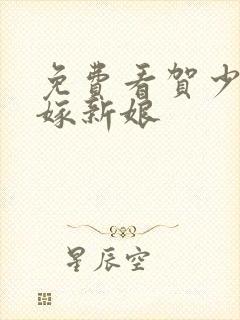 免费看贺少
嫁新娘
星辰空